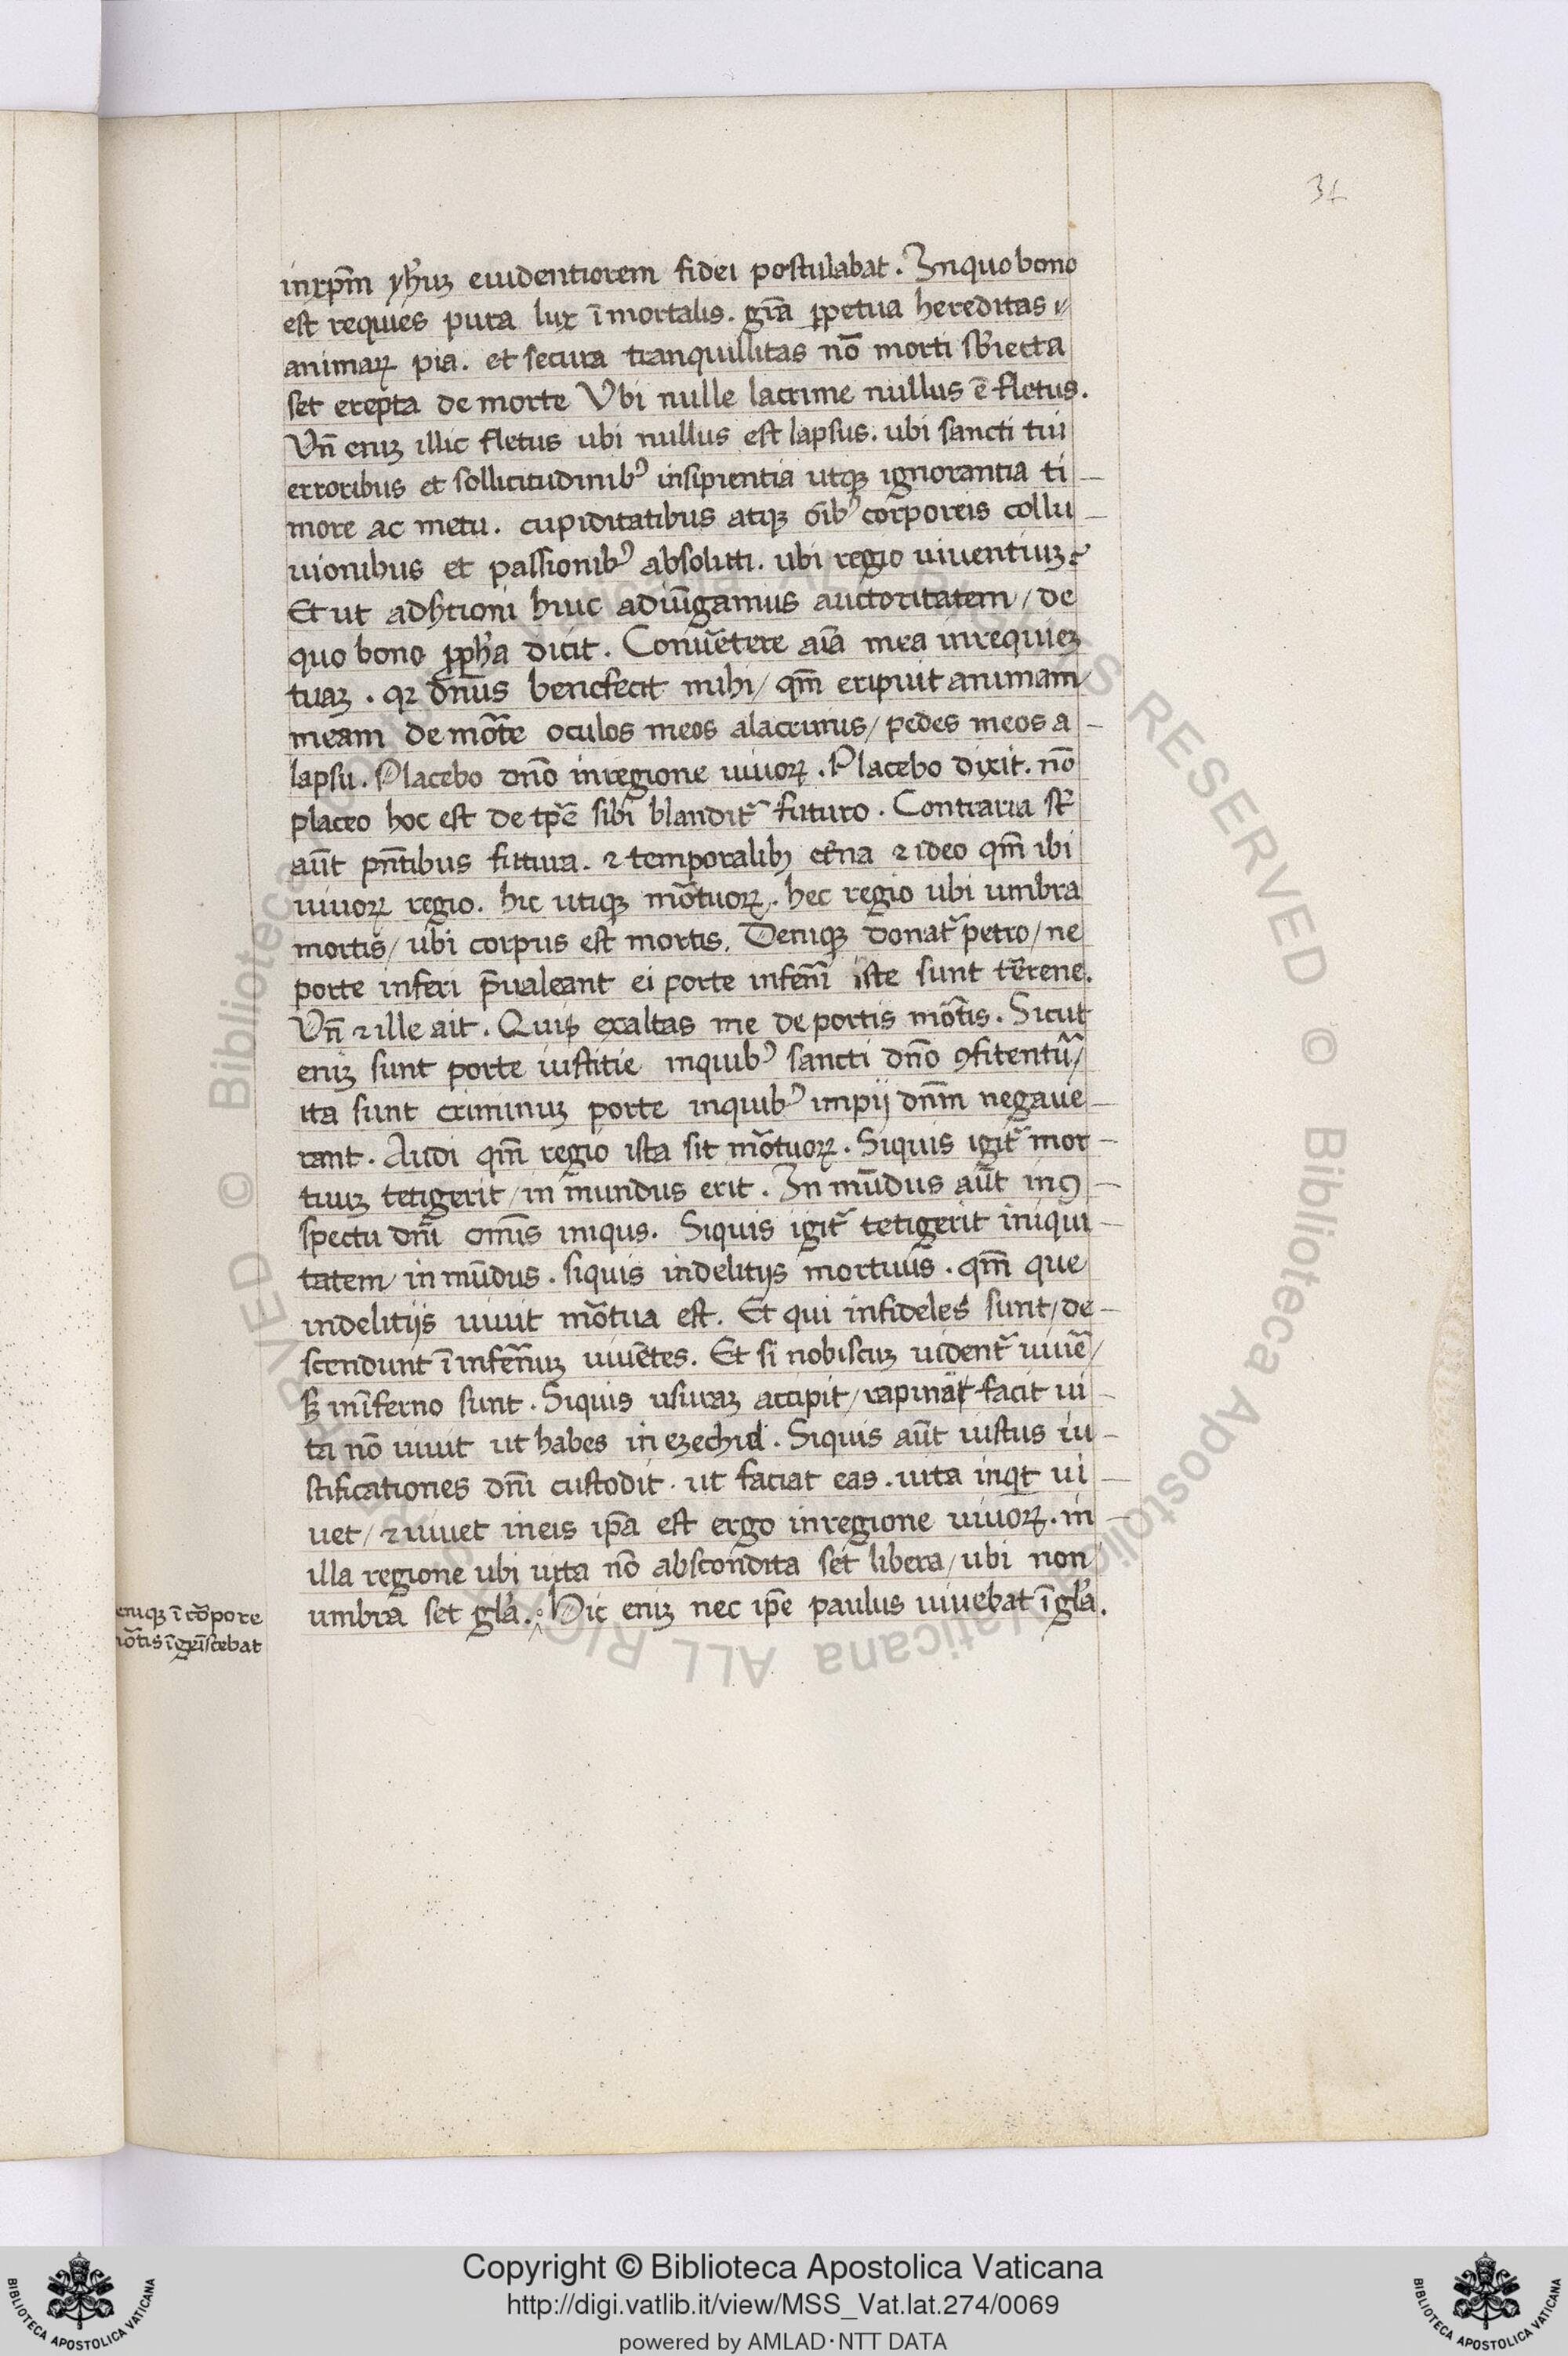 31
inxp̄m yh̄uȝ euidentiorem fidei postulabat. In quo bono
est requies pura lux ī mortalis. gr̄a ꝑpetua hereditas
animaꝝ pia. et secura tranquillitas nō morti sb̄iecta
set erepta de morte Vbi nulle lacrime nullus ē fletus.
Vn̄ eniȝ illic fletus ubi nullus est lapsus. ubi sancti tui
erroribus et sollicitudinibꝰ insipientia utqȝ ignorantia ti-
more ac metu. cupiditatibus atqȝ oībꝰ corporeis collu-
uionibus et passionibꝰ absoluti. ubi regio uiuentiuȝ.
Et ut adhtioni huic adiūgamus auctoritatem / de
quo bono ꝓph̄a dicit. Conuētere aīa mea inrequieȝ
tuaȝ. qꝛ dn̄us benefecit mihi / qm̄ eripuit animam
meam de mōte oculos meos alacrimis / pedes meos a-
lapsu. Placebo dn̄o inregione uiuoꝝ. Placebo dixit. nō
placeo hoc est de tp̄e sibi blandit᷑ futuro. Contraria st̄
aūt pn̄tibus futura. ⁊ temporalibȝ et̄na ⁊ ideo qm̄ ibi
uiuoꝝ regio. hic utiqȝ mōtuoꝝ. hec regio ubi umbra
mortis / ubi corpus est mortis. Deniqȝ donat᷑ petro / ne
porte inferi p̄ualeant ei porte infen̄i iste sunt tērene.
Vn̄ ⁊ ille ait. Qui exaltas me de portis mōtis. Sicut
eniȝ sunt porte iustitie inquibꝰ sancti dn̄o ꝯfitentur᷑ /
ita sunt criminuȝ porte inquibꝰ impij dn̄m negaue-
rant. Audi qm̄ regio ista sit mōtuoꝝ. Siquis igit᷑ mor-
tuuȝ tetigerit / in mundus erit. In mūdus aūt inꝯ-
spectu dn̄i om̄is iniqus. Siquis igit᷑ tetigerit iniqui-
tatem / in mūdus. siquis indelitijs mortuus. qm̄ que
indelitijs uiuit mōtua est. Et qui infideles sunt / de-
scendunt ī infen̄uȝ uiuētes. Et si nobiscuȝ uident᷑ uiuē /
sȝ inīferno sunt. Siquis usuraȝ accipit / rapinā facit ui-
ta nō uiuit ut habes in ezechiel. Siquis aūt iustus iu-
stificationes dn̄i custodit. ut faciat eas. uita inqt ui-
uet / ⁊ uiuet ineis ip̄a est ergo inregione uiuoꝝ. in-
illa regione ubi uita nō abscondita set libera / ubi non
umbra set gl̄a. Hic eniȝ nec ip̄e paulus uiuebat ī gl̄a.
eniqȝ ī cōpore
ōtis īgeīscebat
Copyright © Biblioteca Apostolica Vaticana
http://digi.vatlib.it/view/MSS_Vat.lat.274/0069
powered by AMLAD·NTT DATA
BIBLIOTECA APOSTOLICA VATICANA
BIBLIOTECA APOSTOLICA VATICANA